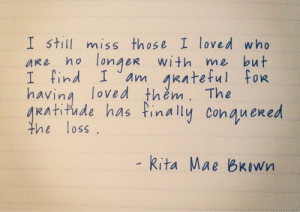 I still miss those I loved who
are no longer with me but
I find I am grateful for
having loved them. The
gratitude has finally conquered
the loss.
- Rita Mae Brown